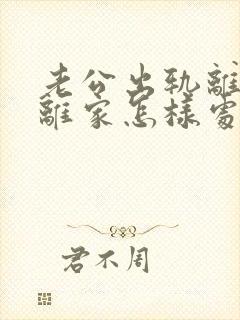 老公出轨離
離家怎樣處
君不周